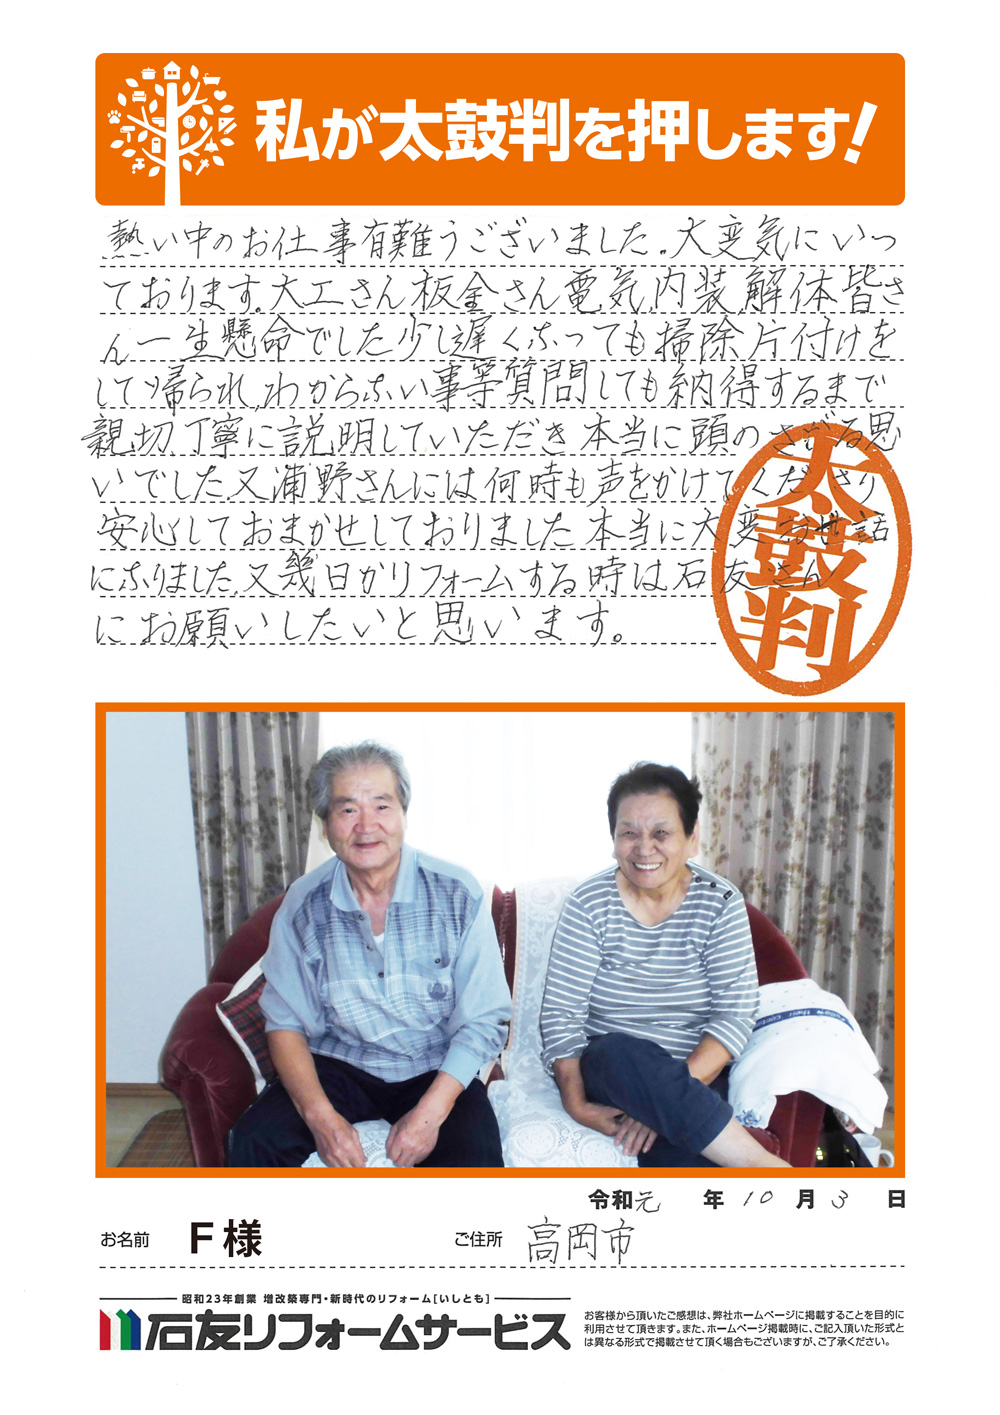 私が太鼓判を押します!
熱い中のお仕事有難うございました。大変気にいっ
ております。大工さん板金さん電気、内装、解体皆さ
ん一生懸命でした少し遅くなっても掃除片付けを
して帰られ、わからない事等質問しても納得するまで
親切、丁寧に説明していただき本当に頭のさがる思
いでした又浦野さんには何時も声をかけてくださり
安心しておまかせしておりました本当に大変お世話
になりました。又幾日かリフォームする時は石友さん
にお願いしたいと思います。
太鼓判
令和元年10月3日
お名前 F様 ご住所 高岡市
昭和23年創業 増改築専門・新時代のリフォーム[いしとも]
石友リフォームサービス
お客様から頂いたご感想は、弊社ホームページに掲載することを目的に
利用させて頂きます。また、ホームページ掲載時に、ご記入頂いた形式と
は異なる形式で掲載させて頂く場合もございますが、ご了承ください。